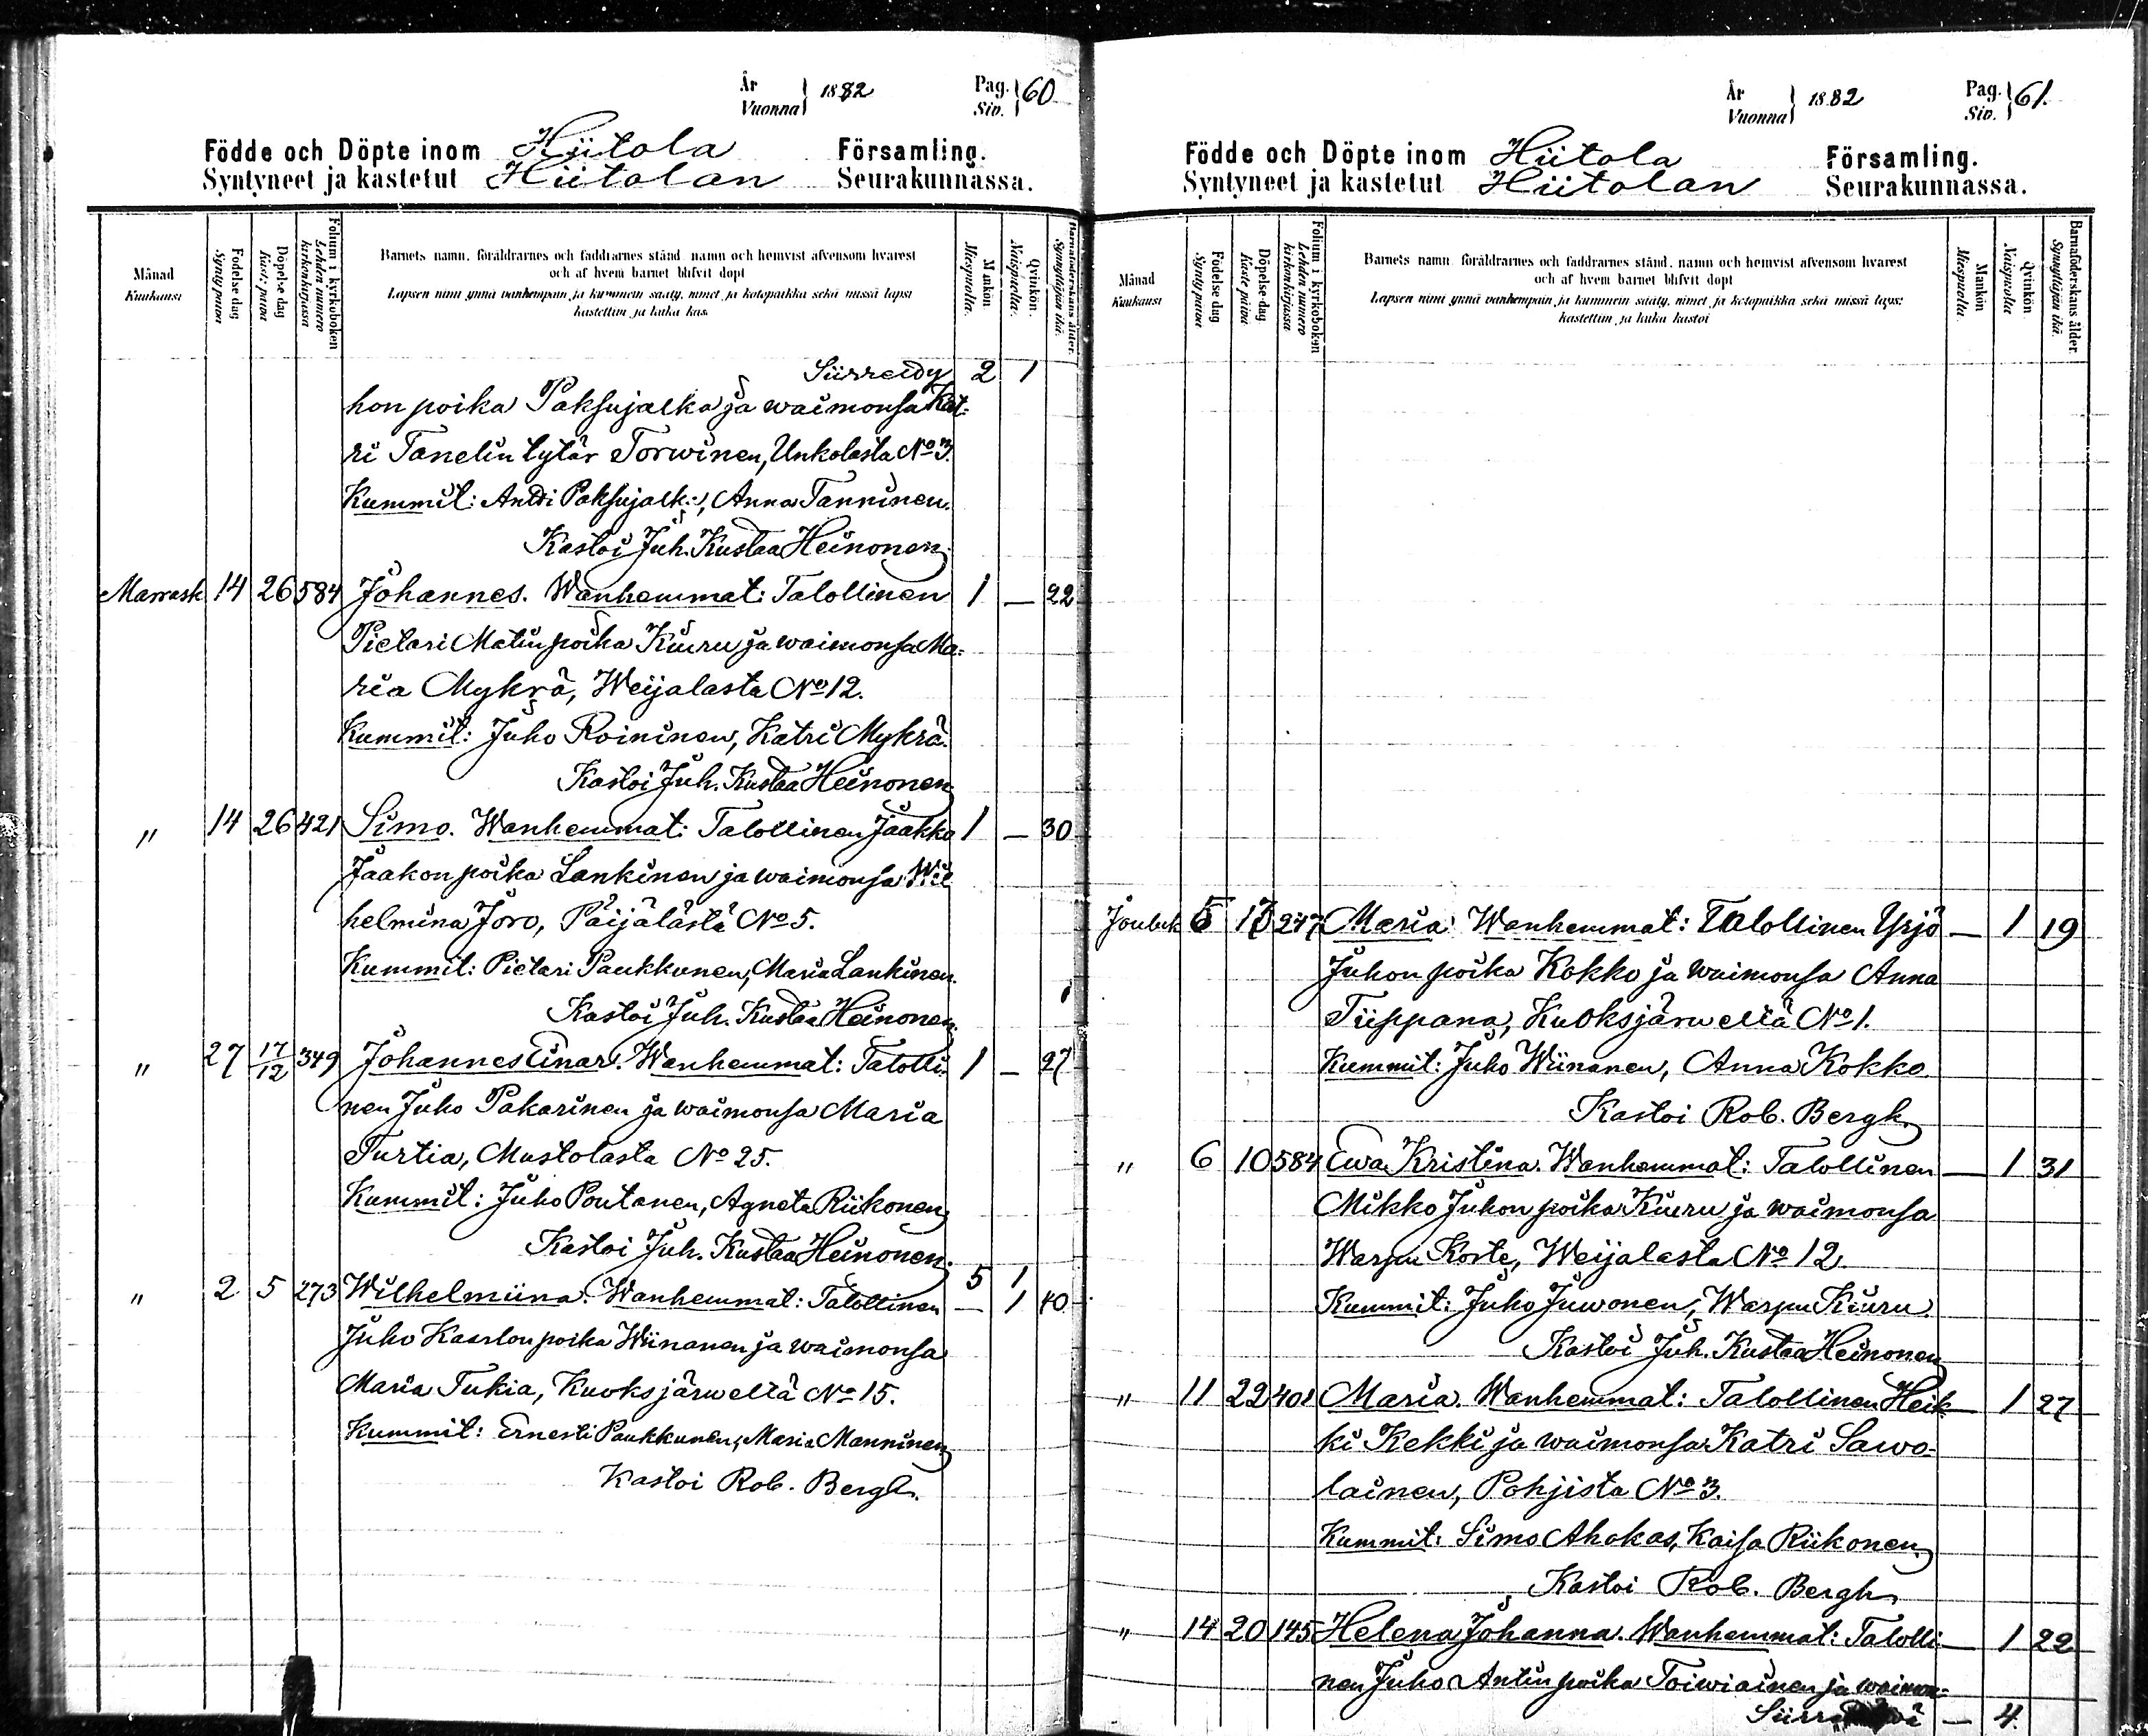 År Vuonna 1882 Pag. Siv. 60
Födde och Döpte inom Hiitola Församling.
Syntyneet ja kastetut Hiitolan Seurakunnassa.
Månad Kuukausi
Födelse dag Synty päivä
Döpelse dag Kaste päivä
Folium i kyrkoboken Lehden numero kirkonkirjassa
Barnets namn, föräldrarnes och faddrarnes stånd namn och hemvist äfvensom hvarest
och af hvem barnet blifvit döpt
Lapsen nimi ynnä vanhempain ja kummein sääty, nimet ja kotopaikka sekä missä lapsi
kastettiin ja kuka kas.
Mankön Miespuolta.
Qvinkön. Naispuolta.
Barnaföderskans ålder. Synnyttäjän ikä.
2 1
hon poika Paksujalka ja waimonsa Kat-
ri Tanelin tytär Torwinen, Unkolasta No 3.
Kummit: Antti Paksujalk:, Anna Tanninen.
Kastoi Juh. Kustaa Heinonen.
Marrask 14 26 584 Johannes. Wanhemmat: Talollinen 1 — 22
Pietari Matinpoika Kiuru ja waimonsa Ma-
ria Mykrä, Weijalasta No 12.
Kummit: Juho Roininen, Katri Mykrä.
Kastoi Juh. Kustaa Heinonen
" 14 26 421 Simo. Wanhemmat: Talollinen Jaakko 1 — 30
Jaakon poika Lankinen ja waimonsa Wil
helmina Joro, Päijälästä No 5.
Kummit: Pietari Paukkunen, Maria Lankinen.
Kastoi Juh. Kustaa Heinonen.
" 27 17/12 349 Johannes Einar. Wanhemmat: Talolli- 1 — 27
nen Juho Pakarinen ja waimonsa Maria
Turtia, Mustolasta No 25.
Kummit: Juho Pontanen, Agneta Riikonen
Kastoi Juh. Kustaa Heinonen.
5 1
" 2 5 273 Wilhelmiina. Wanhemmat: Talollinen — 1 40
Juho Kaarlonpoika Wiinanen ja waimonsa
Maria Tukia, Kuoksjärweltä No 15.
Kummit: Ernesti Paukkunen, Maria Manninen
Kastoi Rob. Bergh.
År Vuonna 1882 Pag. Siv. 61.
Födde och Döpte inom Hiitola Församling.
Syntyneet ja kastetut Hiitolan Seurakunnassa.
Månad Kuukausi
Födelse dag Synty päivä
Döpelse dag Kaste päivä
Folium i kyrkoboken Lehden numero kirkonkirjassa
Barnets namn föräldrarnes och faddrarnes stånd, namn och hemvist äfvensom hvarest
och af hvem barnet blifvit döpt
Lapsen nimi ynnä vanhempain ja kummein sääty, nimet ja kotopaikka sekä missä lapsi
kastettiin ja kuka kastoi
Mankön Miespuolta
Qvinkön Naispuolta
Barnaföderskans ålder Synnyttäjän ikä.
Jouluk 247 Maria Wanhemmat: Talollinen Yrjö — 1 19
Juhon poika Kokko ja waimonsa Anna
Tiippana, Kuoksjärweltä No 1.
Kummit: Juho Wiinanen, Anna Kokko
Kastoi Rob. Bergh.
" 6 10 584 Ewa Kristina. Wanhemmat: Talollinen — 1 31
Mikko Juhon poika Kiuru ja waimonsa
Warpu Koste, Weijalasta No 12.
Kummit: Juho Juwonen, Warpu Kiuru.
Kastoi Juh. Kustaa Heinonen
" 11 22 401 Maria. Wanhemmat: Talollinen Heik- — 1 27
ki Kekki ja waimonsa Katri Sawo-
lainen, Pohjista No 3.
Kummit: Simo Ahokas, Kaisa Riikonen.
Kastoi Rob. Bergh.
" 14 20 145 Helena Johanna. Wanhemmat: Talolli- — 1 22
nen Juho Antinpoika Toiwiainen ja waimon-
— 4.